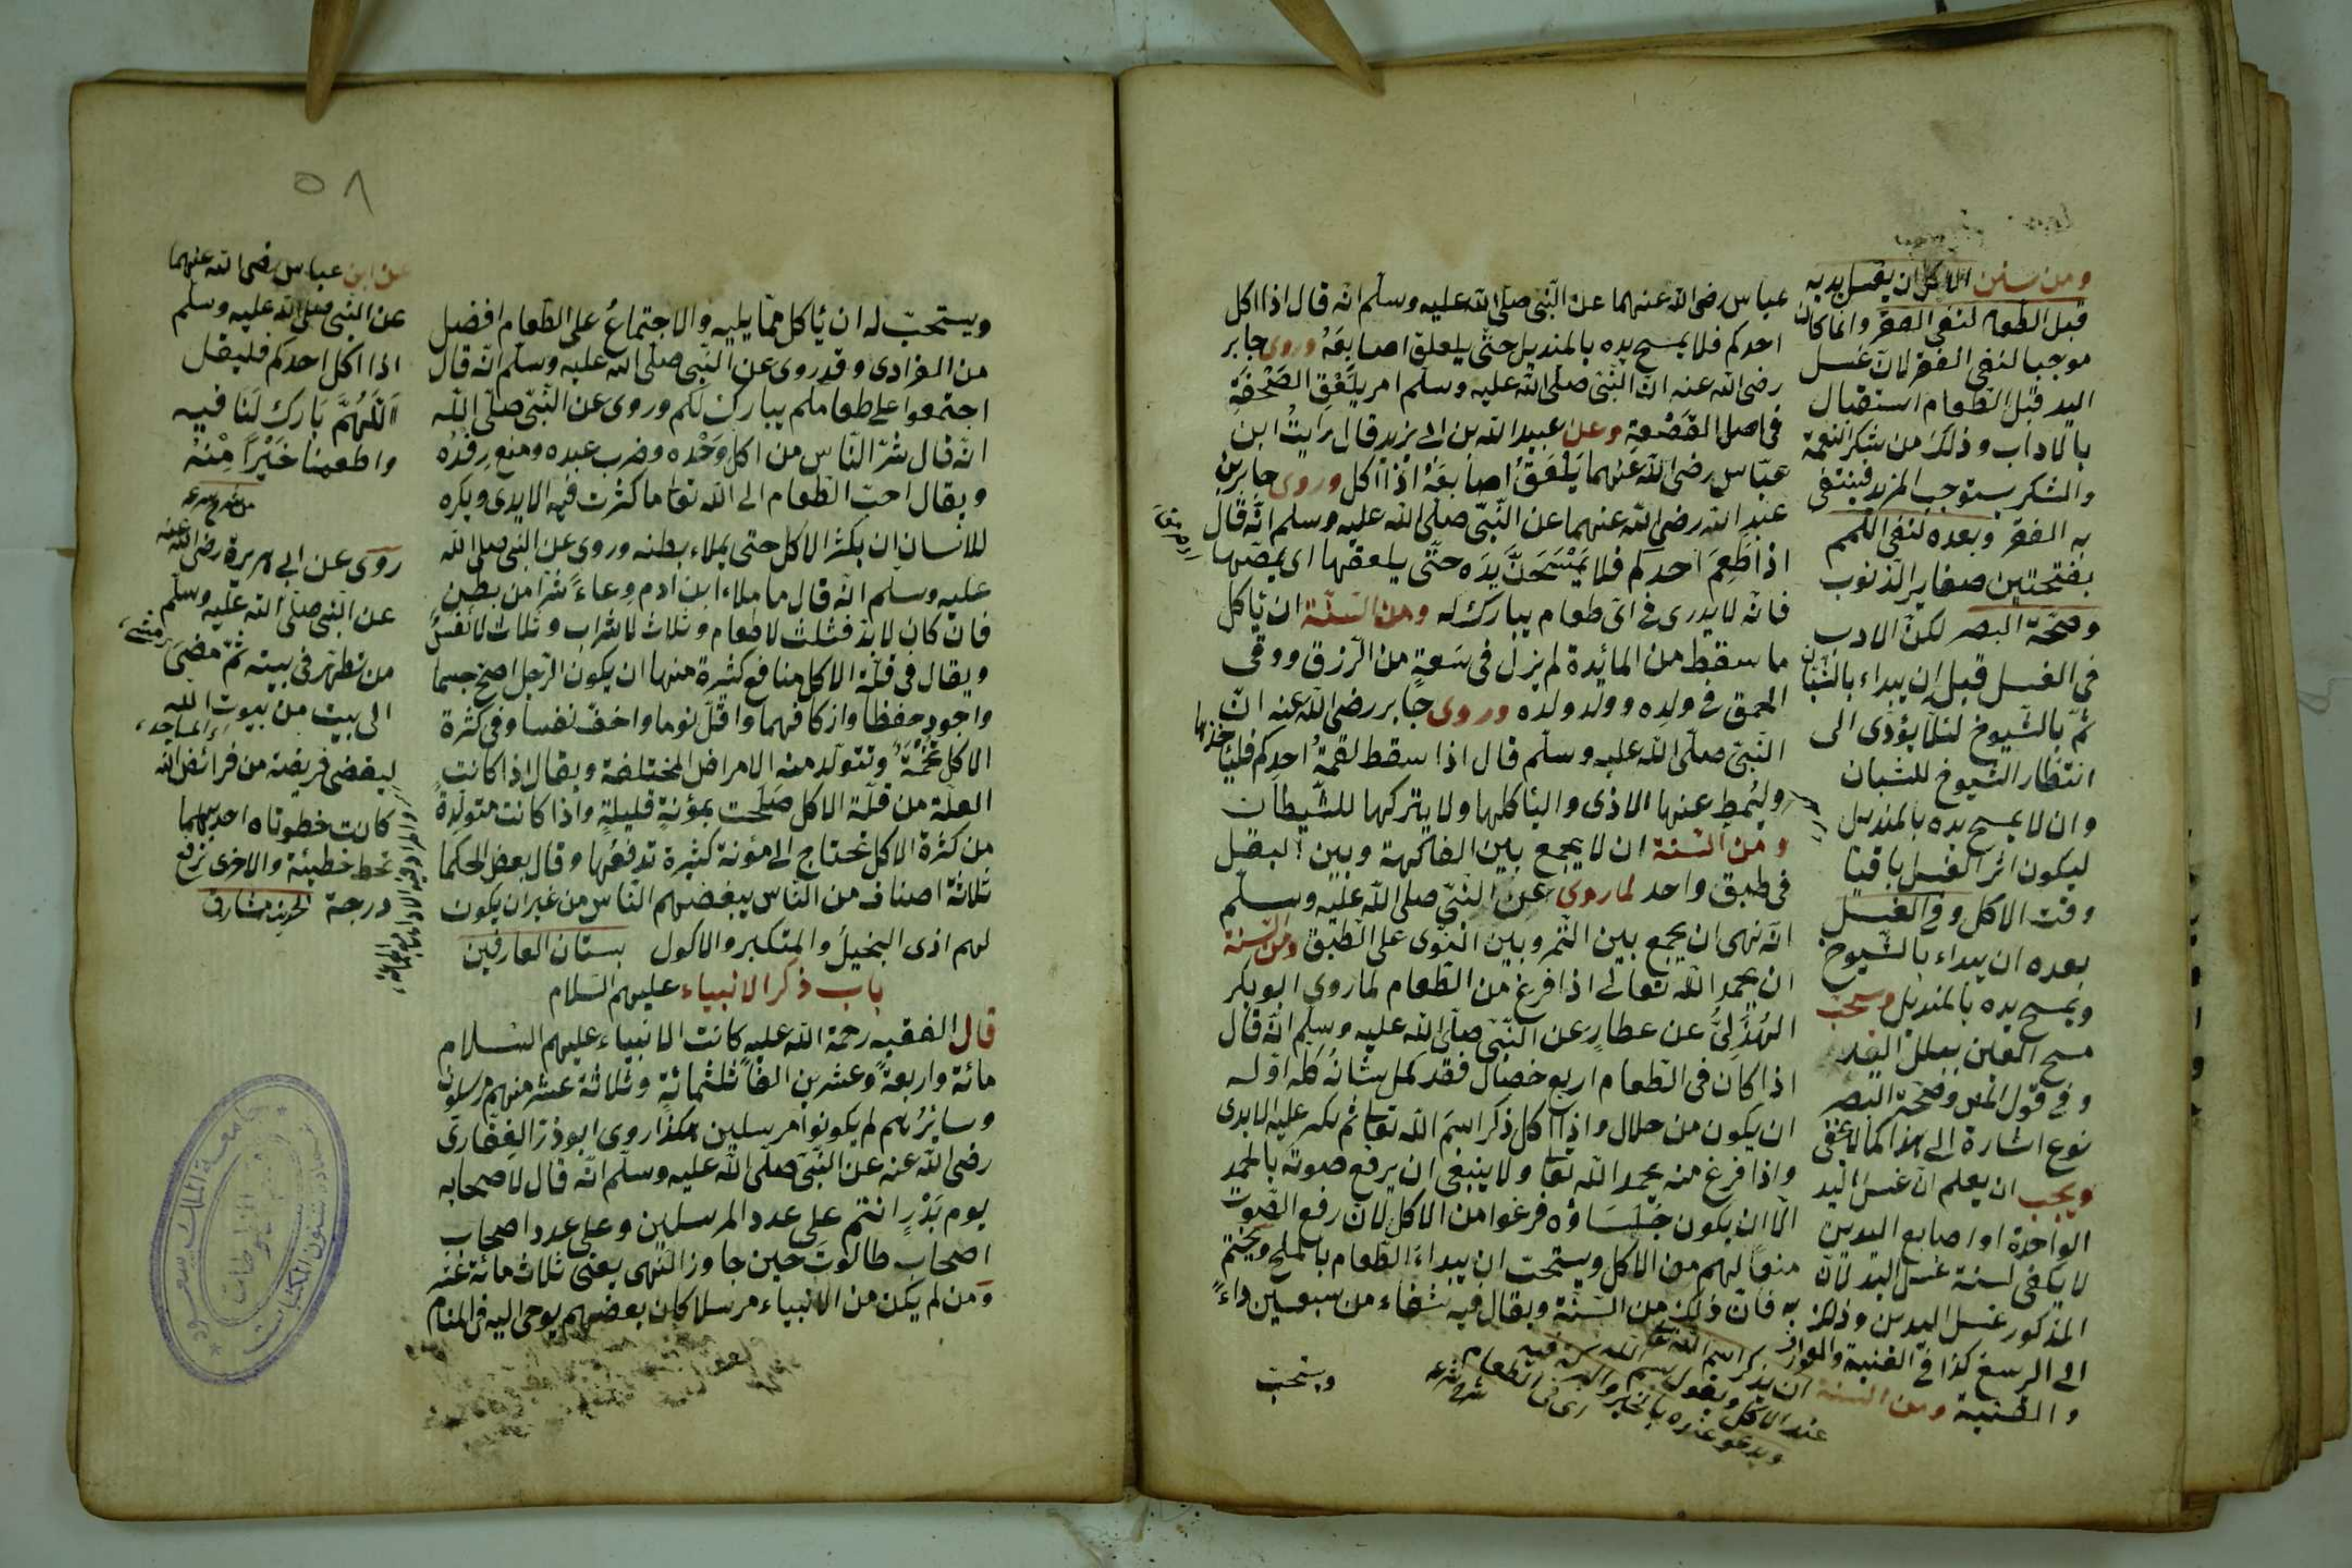 عباس رضى الله عنهما عن النّبى صلى الله عليه وسلم انه قال اذا اكل
احدكم فلا يمسح يده بالمنديل حتّى يلعق اصابعَهُ وروى جابر
رضى الله عنه انّ النّبى صلّى الله عليه وسلّم امر بلَعْقِ الصَحْفَةِ
فى اصل القَصْعةِ وعن عبيد الله بن ابى يزيد قال رايتُ ابن
عبّاس رضى الله عنهما يَلْعَقُ اصابعَهُ اذا اكل وروى جابر بن
عبد الله رضى الله عنهما عن النّبىّ صلّى الله عليه وسلم انّه قال
اذا طَعِمَ احدكم فلا يَمْسَحَنَّ يَدَه حتّى يلعقها اى يمصّها
فانّه لا يدرى فى اىّ طعام يبارك له ومن السّنّة ان يأكل
ما سقط من المائدة لم يزل فى سَعةٍ من الرّزق ووقى
الحمق فى ولده وولد ولده وروى جابر رضى الله عنه انّ
النّبىّ صلّى الله عليه وسلّم قال اذا سقط لقمةُ احدكم فليأخذها
وليُمِط عنها الاذى واليأكلها ولا يتركها للشّيطان
ومن السّنة ان لا يجمع بين الفاكهة وبين البقل
فى طبق واحد لما روى عن النّبىّ صلى الله عليه وسلّم
انّه نهى ان يجمع بين التّمر وبين النّوى على الطّبق ومن السّنة
ان يحمد الله تعالى اذا فرغ من الطّعام لما روى ابو بكر
الهُذَلِىُّ عن عطاءٍ عن النّبىّ صلّى الله عليه وسلّم انّه قال
اذا كان فى الطّعام اربع خصال فقد كمل شانُه كلّه اوّله
ان يكون من حلال واذا اكل ذكر اسمَ الله تعا ثم يكثر عليه الايدى
واذا فرغ منه يحمد الله تعا ولا ينبغى ان يرفع صوتَه بالحمد
الّا ان يكون جُلَسَاؤه فرغوا من الاكل لانّ رفع الصّوت
منعاً لهم من الاكل ويستحبّ ان يبداء الطّعام بالملح ويختم
به فانّ ذلك من السّنّة ويقال فيه شفاء من سبعين داءً
ويستحب
ومن سنن الاكل ان يغسل يديه
قبل الطعام لنفى الفقر وانما كان
موجبا لنفى الفقر لانّ غسل
اليد قبل الطعام استقبال
بالاداب وذلك من شكر النعمة
والشكر يستوجب المزيد فينتفى
به الفقر وبعده لنفى اللمم
بفتحتين صغاير الذنوب
وصحّة البصر لكنّ الادب
فى الغسل قبل ان يبداء بالشبّان
ثمّ بالشيوخ لئلّا يؤدّى الى
انتظار الشيوخ للشبان
وان لا يمسح يده بالمنديل
ليكون اثر الغسل باقيا
وقت الاكل وفى الغسل
بعده ان يبداء بالشيوخ
ويمسح يده بالمنديل ويستحب
مسح العين ببلل اليد
وفى قول المص وصحّة البصر
نوع اشارة الى هذا كما لا يخفى
ويجب ان يعلم انّ غسل اليد
الواحدة او اصابع اليدين
لا يكفى لسنة غسل اليد لانّ
المذكور غسل اليدين وذلك
الى الرسغ كذا فى القنية
والقنية ومن السنة ان يذكر اسم الله تعا
عند الاكل ويقول بسم الله
ويدعو عنده بالخير والبركة فيه
اى فى الطعام
شرح شرعه
ويستحبّ له ان يأكل ممّا يليه والاجتماعُ على الطّعام افضل
من الفرادى وقد روى عن النّبى صلّى الله عليه وسلّم انّه قال
اجتمعوا على طعامكم يبارك لكم وروى عن النّبىّ صلّى الله
انّه قال شرّ النّاس من اكل وَحْدَه وضرب عبده ومنع رِفدَه
ويقال احبّ الطّعام الى الله تعا ما كثرت فيه الايدى ويكره
للانسان ان يكثر الاكل حتى يملاء بطنه وروى عن النّبى صلى الله
عليه وسلّم انّه قال ما ملاء ابن ادم وِعاءً شرّا من بطنٍ
فان كان لابدّ فثلث لاطعام وثلاث لاشراب وثلاث لانفسٍ
ويقال فى قلّة الاكل منافع كثيرة منها ان يكون الرّجل اصحّ جسما
واجود حفظا وازكا فهما واقلّ نوما واخفّ نفسا وفى كثرة
الاكل تُخْمَةٌ وتتولّد منه الامراض المختلفة ويقال اذا كانت
العلّة من قلّة الاكل صَلَحت بمؤنةٍ قليلةٍ واذا كانت متولّدةً
من كثرة الاكل تحتاج الى مؤنة كثيرة تدفعها وقال بعض الحكما
ثلاثة اصناف من النّاس يبغضهم النّاس من غير ان يكون
لهم اذى البخيلُ والمتكبر والاكول بستان العارفين
باب ذكر الانبياء عليهم السّلام
قال الفقيه رحمة الله عليه كانت الانبياء عليهم السّلام
مائة واربعةً وعشرين الفاً ثلثمائةٍ وثلاثة عشر منهم مرسلون
وسائرُهم لم يكونوا مرسلين هكذا روى ابوذر الغِفّارى
رضى الله عنه عن النّبىّ صلّى الله عليه وسلّم انّه قال لاصحابه
يوم بَدْرٍ انتم على عدد المرسلين وعلى عدد اصحاب
اصحاب طالوتَ حين جاوز النّهى يعنى ثلاث مائة عشر
ومن لم يكن من الانبياء مرسلا كان بعضهم يوحى اليه فى المنام
٥٨
عن ابن عباس رضى الله عنهما
عن النّبى صلى الله عليه وسلّم
اذا اكل احدكم فليقل
اَللَّهُمَّ بَارِك لَنَا فيه
واطعمنا خَيْراً مِنْهُ
من شرح شرعه
روى عن ابى هريرة رضى الله عنه
عن النّبى صلّى الله عليه وسلّم
من تطهّر فى بيته ثمّ مضى
الى بيت من بيوت الله
اى المساجد
ليقضى فريضة من فرائض الله
كانت خطوتاه احديهما
تحط خطيئة والاخرى ترفع
درجة الحديث مشارق
جامعة الملك سعود
عمادة شئون المكتبات